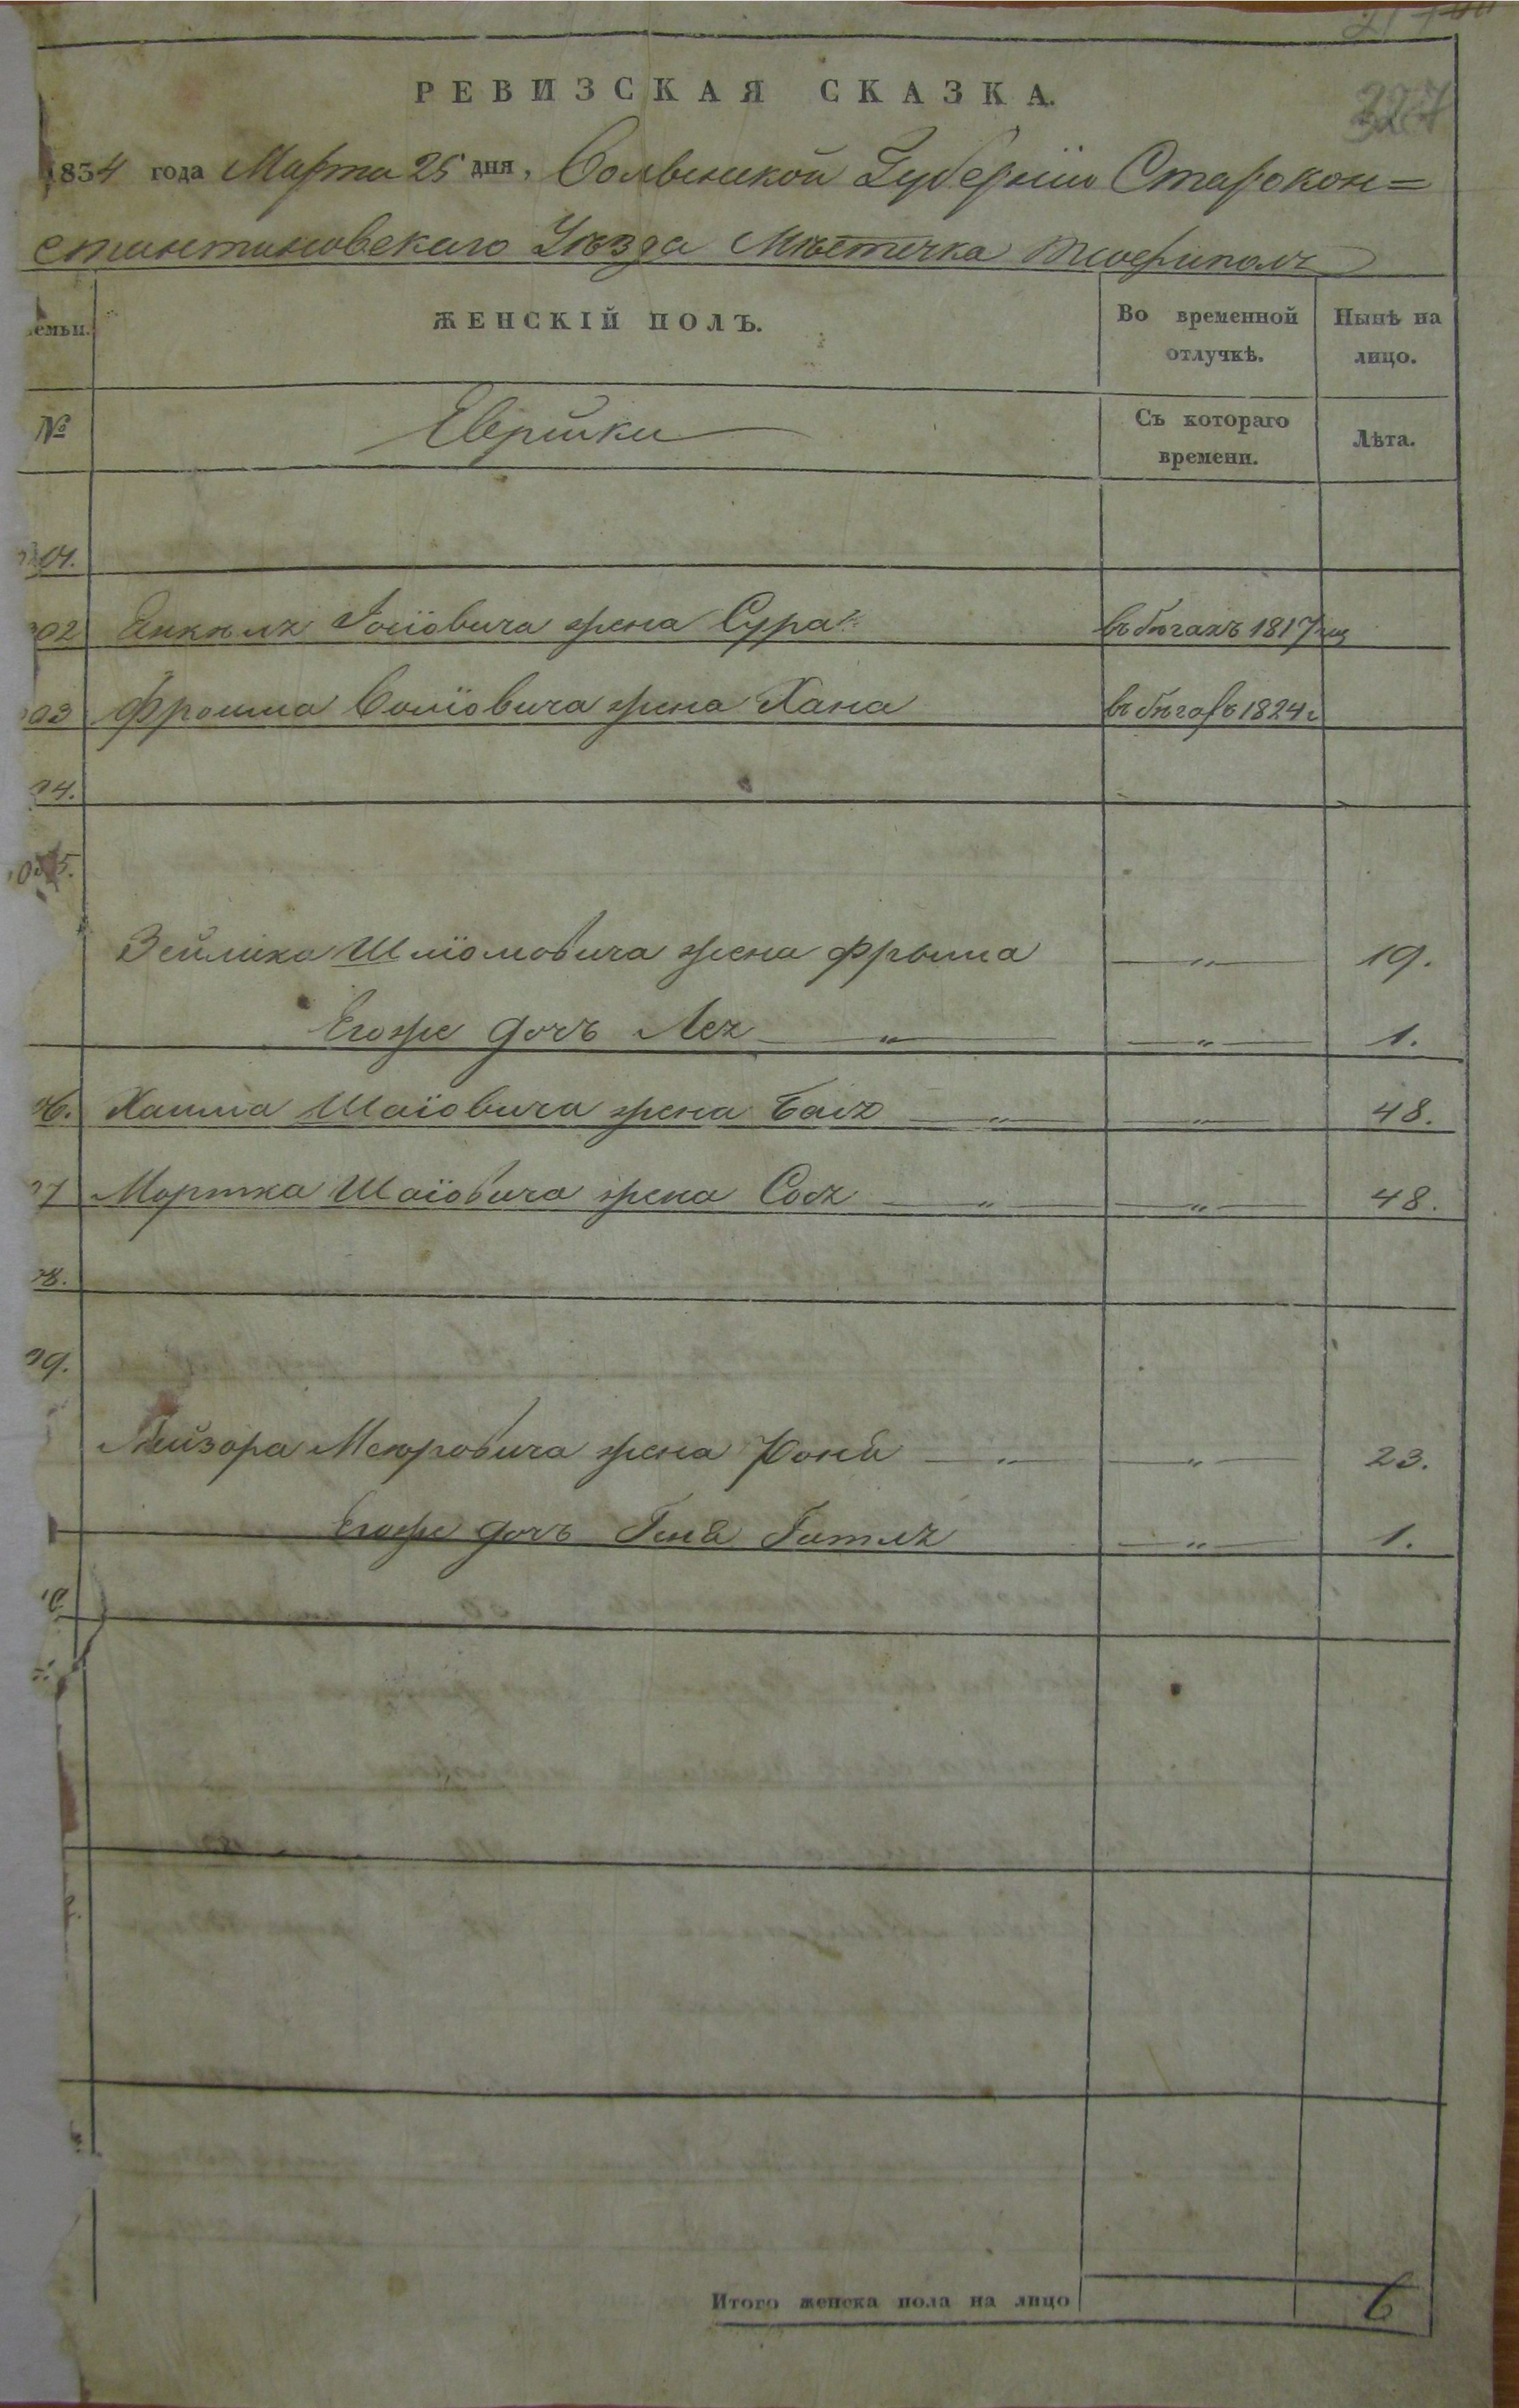 227
РЕВИЗСКАЯ СКАЗКА.
1834 года Марта 25 дня, Волынской Губернiи Старокон=
стантиновскаго Уѣзда Мѣстечка Тиофиполъ
семьи.
ЖЕНСКІЙ ПОЛЪ.
Во временной отлучкѣ.
Нынѣ на лицо.
№
Еврейки
Съ котораго времени.
Лѣта.
01.
02 Янкеля Iосiовича жена Сура въ бѣгахъ 1817
03 Фроима жена Хана въ бѣгахъ 1824г
04.
05.
Зейлика Шлiомовича жена Фрыма — " — 19.
Егоже дочь Лея — " — — " — 1.
06. Хаима Шаiовича жена Бася — " — — " — 48.
07 Мортка Шаiовича жена Сося — " — — " — 48.
08.
09.
Лейзора Меюровича жена — " — — " — 23.
Егоже дочь Гитля — " — 1.
10.
Итого женска пола на лицо 6